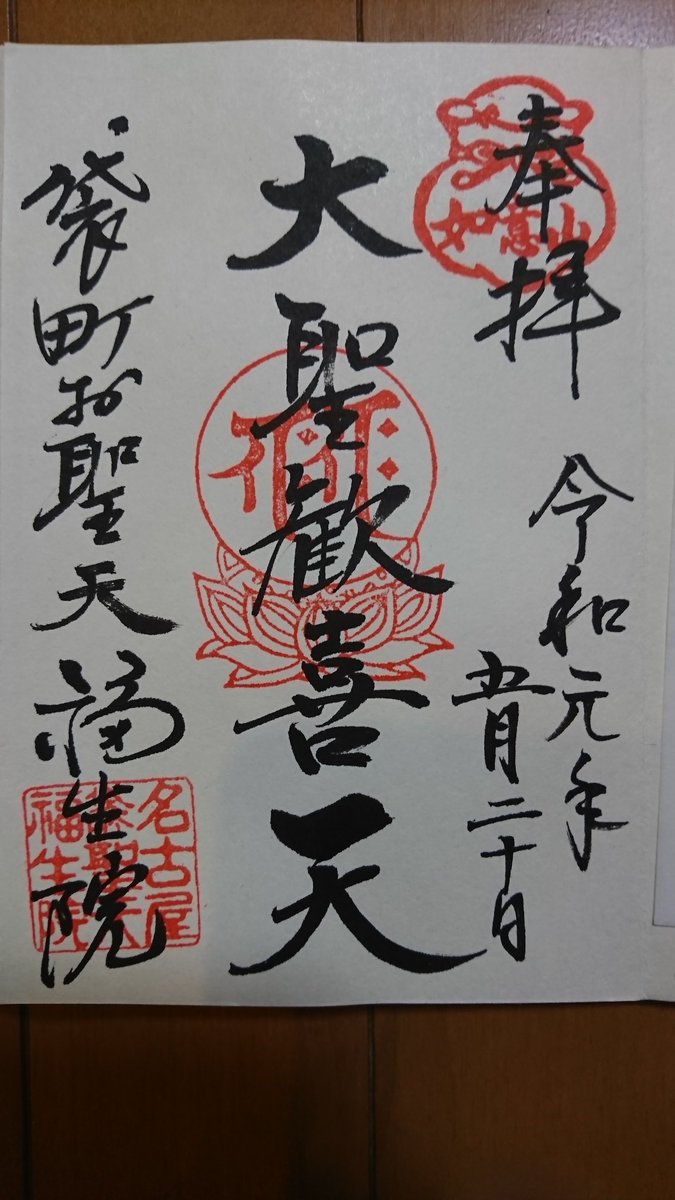 奉拝
如意山
令和元年
五月二十日
大聖歓喜天
袋町お聖天
福生院
名古屋
福生院